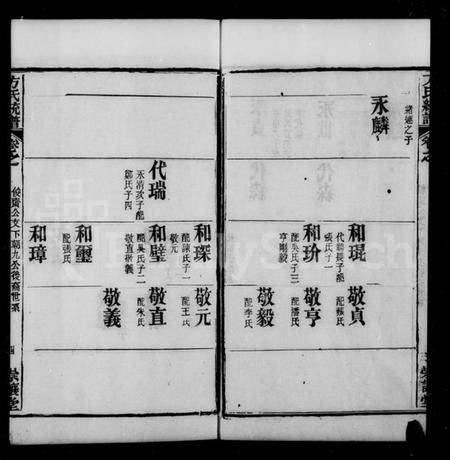 方氏統譜
諸廷之子
永麟
和琨
代楊長子配
張氏子一
敬貞
配蘇氏
和玠
配吳氏子二
亨剛毅
敬亨
配潘氏
敬毅
配李氏
崇讓堂
代瑞
永清次子配
鄭氏子四
和琛
配陳氏子一
敬元
敬元
配王氏
和璧
配吳氏子二
敬直敬義
敬直
配朱氏
敬義
和璽
配張氏
和璋
方氏統譜
卷之一
侯齋公支下朝九公後裔世系
四
崇讓堂